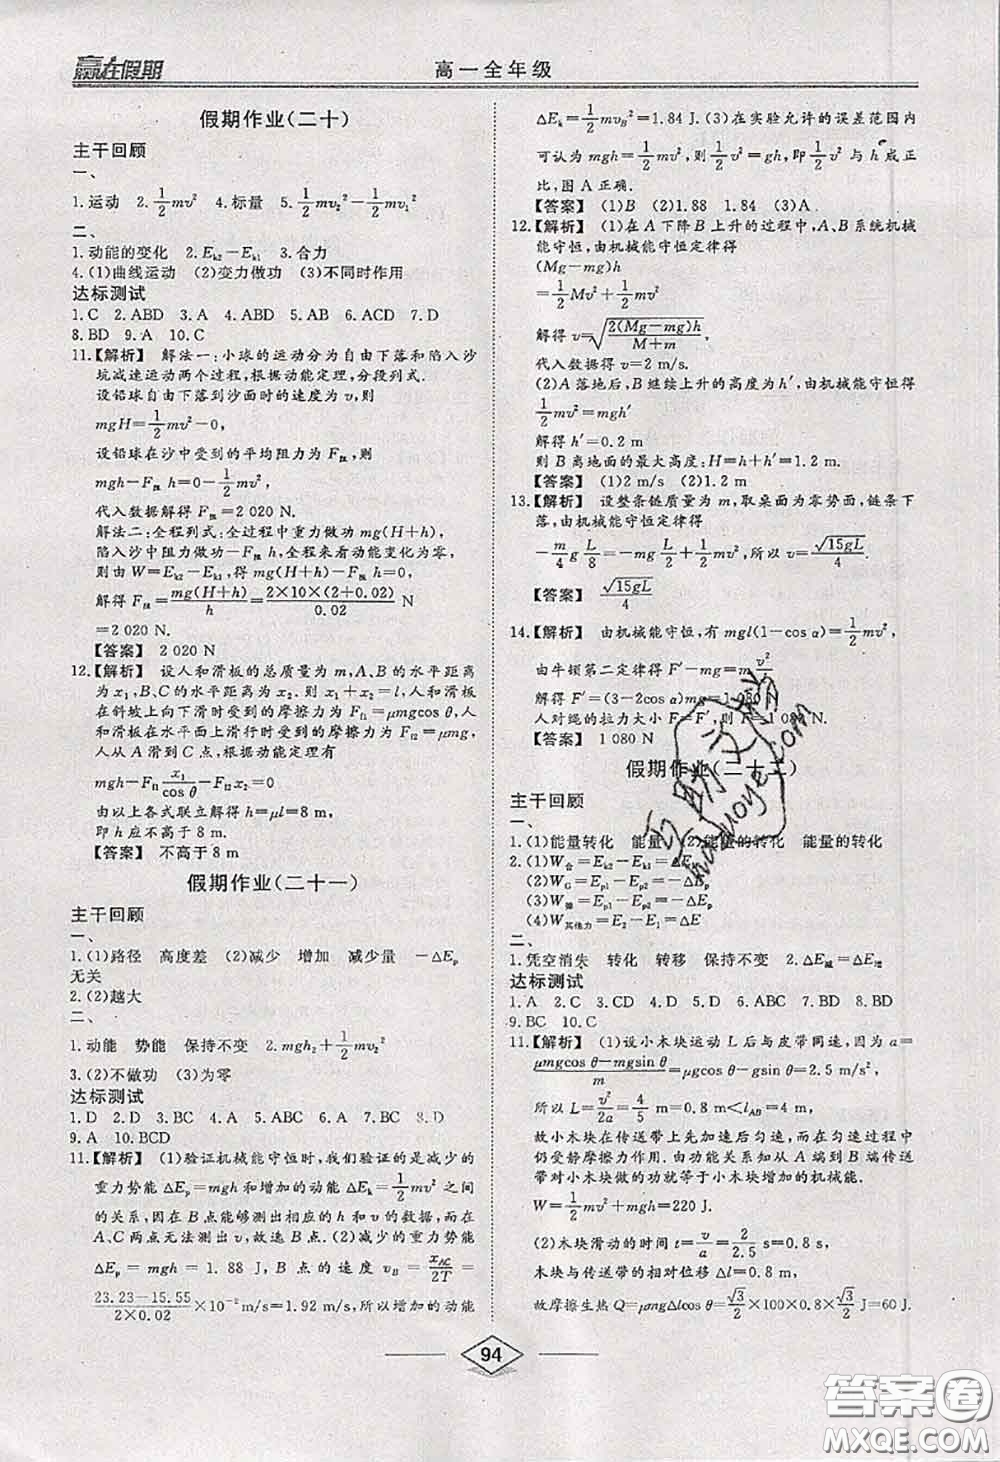 赢在假期
高一全年级
假期作业(二十)
主干回顾
一、
1.运动 2.½mv² 4.标量 5.½mv₂²－½mv₁²
二、
1.动能的变化 2.Eₖ₂－Eₖ₁ 3.合力
4.(1)曲线运动 (2)变力做功 (3)不同时作用
达标测试
1.C 2.ABD 3.A 4.ABC 5.AB 6.ACD 7.D
8.BD 9.A 10.C
11.【解析】 解法一:小球的运动分为自由下落和陷入沙
坑减速运动两个过程,根据动能定理,分段列式.
设铅球自由下落到沙面时的速度为v,则
mgH=½mv²－0,
设铅球在沙中受到的平均阻力为F阻,则
mgh－F阻h=0－½mv²,
代入数据解得F阻=2 020 N.
解法二:全程列式:全过程中重力做功mg(H+h),
陷入沙中阻力做功－F阻h,全程来看动能变化为零,
则由W=Eₖ₂－Eₖ₁,得mg(H+h)－F阻h=0
解得F阻=mg(H+h)/h=2×10×(2+0.02)/0.02 N
=2 020 N.
【答案】 2 020 N
12.【解析】 设人和滑板的总质量为m,A、B的水平距离
为x₁,B、C的水平距离为x₂.则x₁+x₂=l,人和滑板
在斜坡上向下滑时受到的摩擦力为F_f1=μmgcos θ,人
和滑板在水平面上滑行时受到的摩擦力为F_f2=μmg,
人从A滑到C点,根据动能定理有
mgh－F_f1 x₁/cos θ－F_f2x₂=0
由以上各式联立解得h=μl=8 m,
即h应不高于8 m.
【答案】 不高于8 m
假期作业(二十一)
主干回顾
一、
1.(1)路径 高度差 (2)减少 增加 减少量 －ΔEₚ
无关
2.(2)越大
二、
1.动能 势能 保持不变 2.mgh₂+½mv₂²
3.(2)不做功 (3)为零
达标测试
1.D 2.D 3.BC 4.A 5.ABC 6.A 7.BC 8.D
9.A 10.BCD
11.【解析】 (1)验证机械能守恒时,我们验证的是减少的
重力势能ΔEₚ=mgh和增加的动能ΔEₖ=½mv²之间
的关系,因在B点能够测出相应的h和v的数据,而在
A、C两点无法测出v,故选B点.(2)减少的重力势能
ΔEₚ=mgh=1.88 J,B点的速度v_B=x_AC/2T=
(23.23－15.55)/(2×0.02)×10⁻² m/s=1.92 m/s,所以增加的动能
ΔEₖ=½mv_B²=1.84 J.(3)在实验允许的误差范围内
可认为mgh=½mv²,则½v²=gh,即½v²与h成正
比,图A正确.
【答案】 (1)B (2)1.88 1.84 (3)A.
12.【解析】 (1)在A下降B上升的过程中,A、B系统机械
能守恒,由机械能守恒定律得
(Mg－mg)h
=½Mv²+½mv²
解得v=√(2(Mg－mg)h/(M+m))
代入数据得v=2 m/s.
(2)A落地后,B继续上升的高度为h′,由机械能守恒得
½mv²=mgh′
解得h′=0.2 m
则B离地面的最大高度:H=h+h′=1.2 m.
【答案】 (1)2 m/s (2)1.2 m
13.【解析】 设整条链质量为m,取桌面为零势面,链条下
落,由机械能守恒定律得
－(m/4)g(L/8)=－mg(L/2)+½mv²,所以v=√(15gL)/4.
【答案】 √(15gL)/4
14.【解析】 由机械能守恒,有mgl(1－cos α)=½mv²,
由牛顿第二定律得F′－mg=m v²/l
解得F′=(3－2cos α)mg=1 080 N
人对绳的拉力大小F=F′,则F=1 080 N.
【答案】 1 080 N
假期作业(二十二)
主干回顾
一、
1.(1)能量转化 能量 (2)能量的转化 能量的转化
2.(1)W合=Eₖ₂－Eₖ₁=ΔEₖ
(2)W_G=Eₚ₁－Eₚ₂=－ΔEₚ
(3)W弹=Eₚ₁－Eₚ₂=－ΔEₚ
(4)W其他力=E₂－E₁=ΔE
二、
1.凭空消失 转化 转移 保持不变 2.ΔE减=ΔE增
达标测试
1.A 2.C 3.CD 4.D 5.D 6.ABC 7.BD 8.BD
9.BC 10.C
11.【解析】 (1)设小木块运动L后与皮带同速,因a=
(μmgcos θ－mgsin θ)/m=μgcos θ－gsin θ=2.5 m/s²,
所以L=v²/2a=4/5 m=0.8 m<l_AB=4 m,
故小木块在传送带上先加速后匀速,而在匀速过程中
仍受静摩擦力作用.由功能关系知从A端到B端传送带
对小木块做的功就等于小木块增加的机械能.
W=½mv²+mgh=220 J.
(2)木块滑动的时间t=v/a=2/2.5 s=0.8 s,
木块与传送带的相对位移Δl=0.8 m,
故摩擦生热Q=μmgΔlcos θ=√3/2×100×0.8×√3/2 J=60 J.
94
答案卷
MXQE.COM